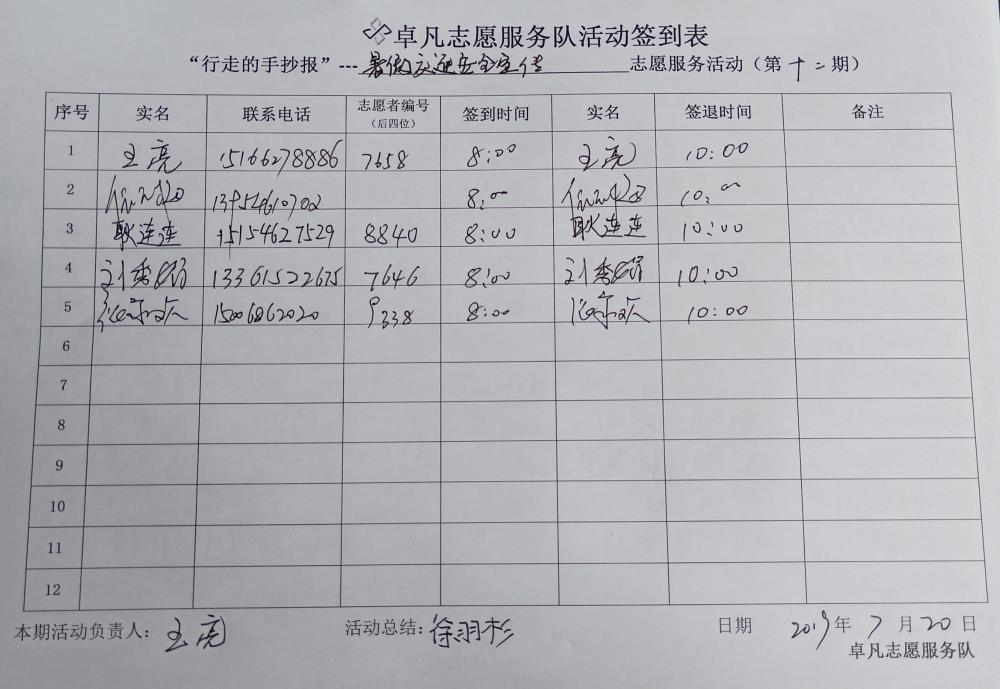 卓凡志愿服务队活动签到表
“行走的手抄报”---暑假交通安全宣传 志愿服务活动（第十二期）
序号 实名 联系电话 志愿者编号（后四位） 签到时间 实名 签退时间 备注
1 王亮 15166278886 7658 8:00 王亮 10:00
2 8:00 10:00
3 耿连连 15154627529 8840 8:00 耿连连 10:00
4 刘秀娟 13361522675 7646 8:00 刘秀娟 10:00
5 15006862020 9338 8:00 10:00
6
7
8
9
10
11
12
本期活动负责人：王亮 活动总结：徐羽杉 日期 2019年7月20日
卓凡志愿服务队